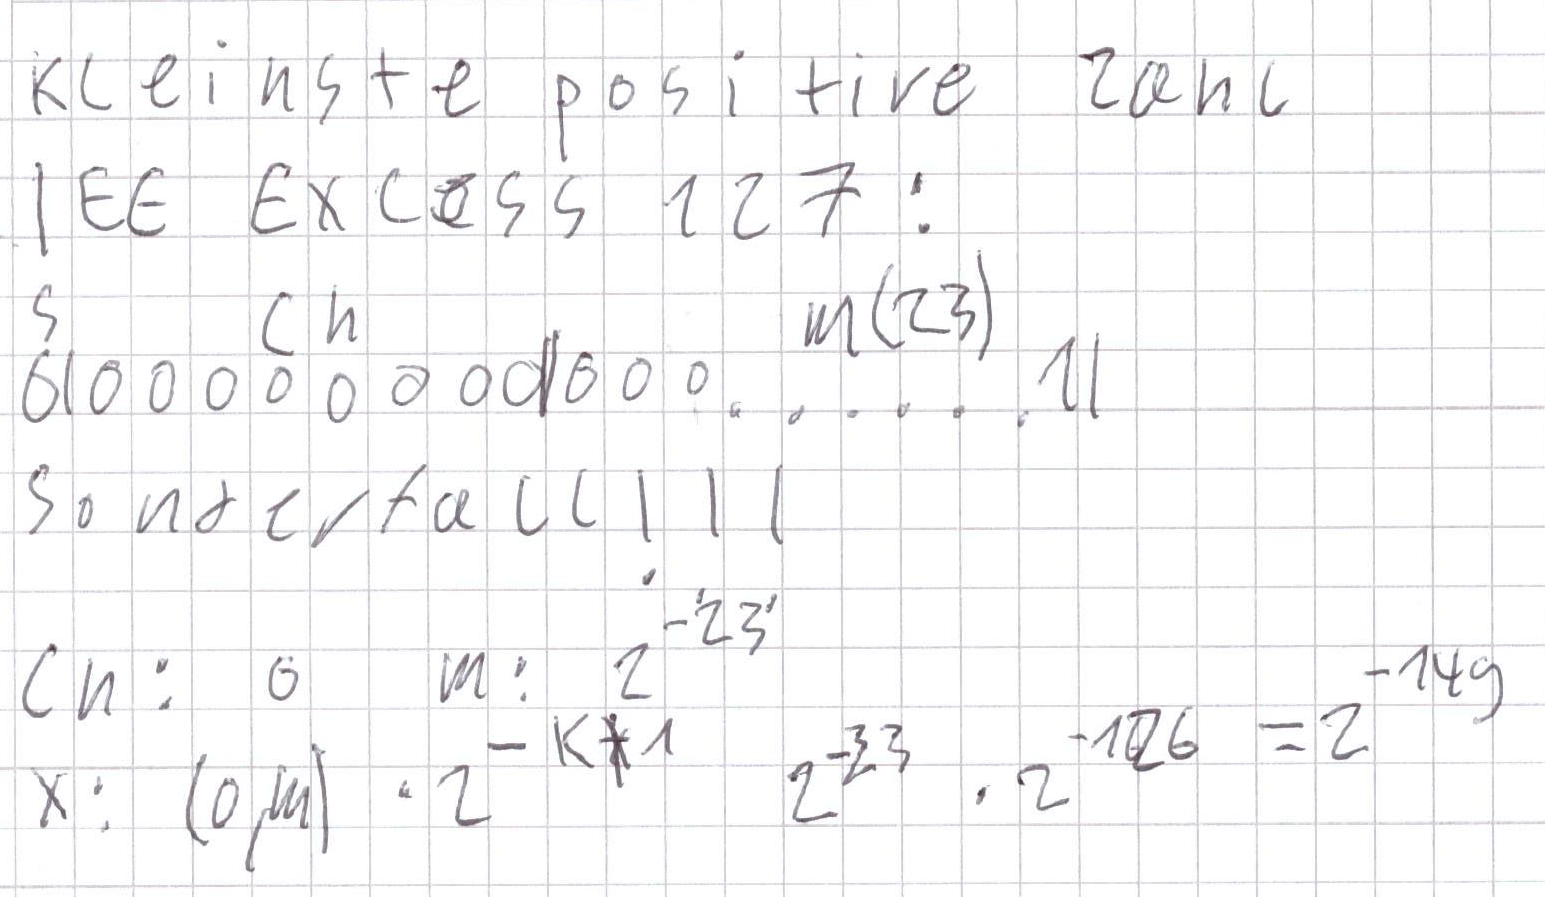 Kleinste positive Zahl
IEE Excess 127:
S Ch m(23)
0|00000000|000.......1|
Sonderfall!!!
Ch: 0 m: 2^-23
X: (0,m) · 2^-K+1 2^-23 · 2^-126 = 2^-149